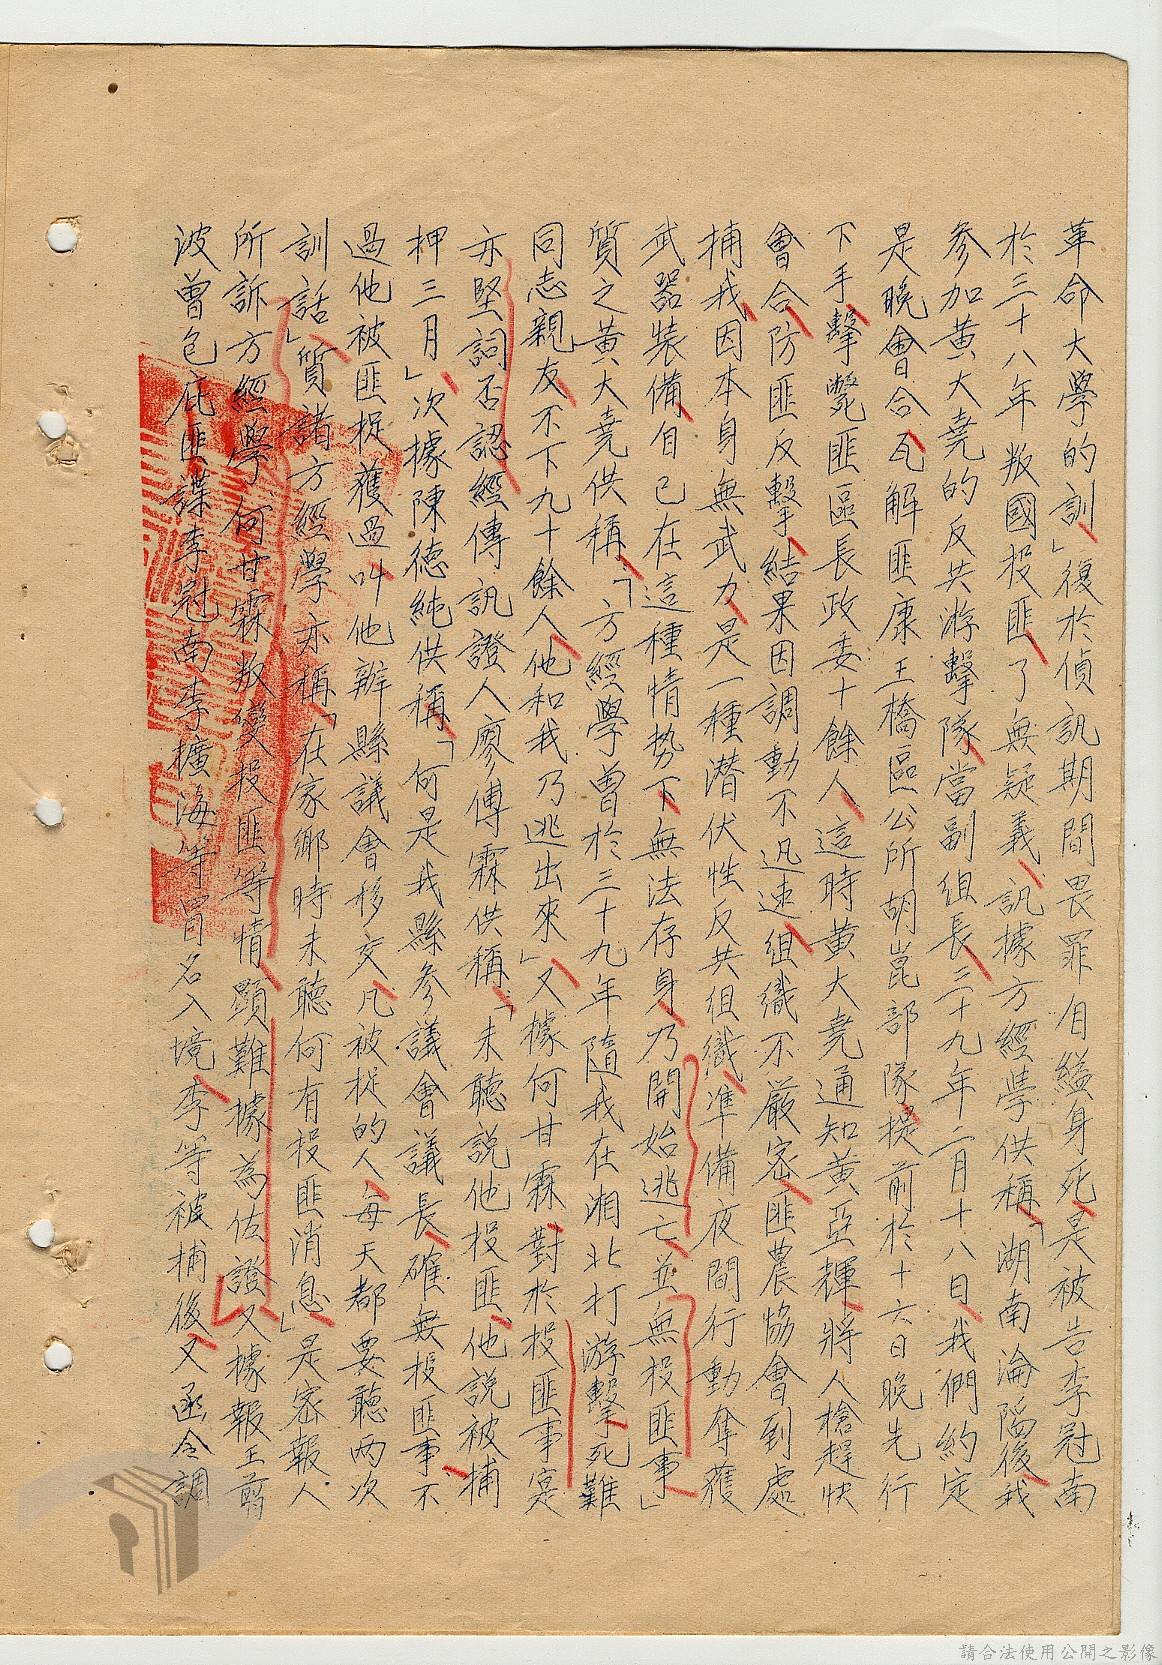 革命大學的訓」復於偵訊期間畏罪自縊身死、是被告李冠南
於三十八年叛國投匪、了無疑義、訊據方經學供稱、「湖南淪陷後、我
參加黃大堯的反共游擊隊、當副組長、三十九年二月十八日、我們約定
是晚會合、瓦解匪康王橋區公所胡崑部隊、提前於十六日晚先行
下手、擊斃匪區長政委十餘人、這時黃大堯通知黃亞輝、將人槍趕快
會合、防匪反擊、結果因調動不迅速、組織不嚴密、匪農協會到處
捕我、因本身無武力、是一種潛伏性反共組織、準備夜間行動奪獲
武器裝備、自己在這種情势下、無法存身、乃開始逃亡、並無投匪事」
質之黃大堯供稱、「方經學曾於三十九年隨我在湘北打游擊、死難
同志親友、不下九十餘人、他和我乃逃出來」、又據何甘霖、對於投匪事寔
亦堅詞否認、經傳訊證人廖傅霖供稱、「未聽說他投匪、他說被捕
押三月」、次據陳德純供稱、「何是我縣參議會議長、確無投匪事、不
過他被匪捉獲過、叫他辦縣議會移交、凡被捉的人、每天都要聽两次
訓話」、質諸方經學亦稱、「在家鄉時未聽何有投匪消息」、是密報人
所訴方經學、何甘霖叛變投匪等情、顯難據為佐證、又據報王翦
波曾包庇匪諜李冠南李擴海等冒名入境、李等被捕後、又函令調
請合法使用公開之影像